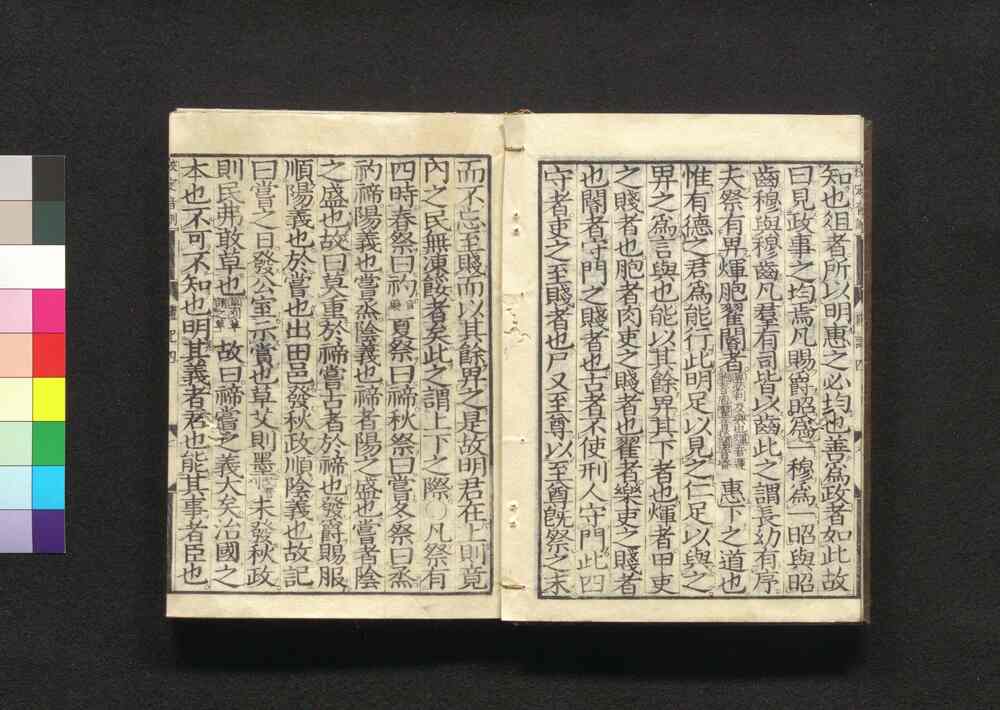 知也俎者所以明惠之必均也善爲政者如此故
曰見政事之均焉凡賜爵昭爲一穆爲一昭與昭
齒穆與穆齒凡羣有司皆以齒此之謂長幼有序
夫祭有畀煇胞翟閽者惠下之道也
惟有德之君爲能行此明足以見之仁足以與之
畀之爲言與也能以其餘畀其下者也煇者甲吏
之賤者也胞者肉吏之賤者也翟者樂吏之賤者
也閽者守門之賤者也古者不使刑人守門此四
守者吏之至賤者也尸又至尊以至尊旣祭之末
而不忘至賤而以其餘畀之是故明君在上則竟
內之民無凍餒者矣此之謂上下之際○凡祭有
四時春祭曰礿夏祭曰禘秋祭曰嘗冬祭曰烝
礿禘陽義也嘗烝陰義也禘者陽之盛也嘗者陰
之盛也故曰莫重於禘嘗古者於禘也發爵賜服
順陽義也於嘗也出田邑發秋政順陰義也故記
曰嘗之日發公室示賞也草艾則墨未發秋政
則民弗敢草也故曰禘嘗之義大矣治國之
本也不可不知也明其義者君也能其事者臣也